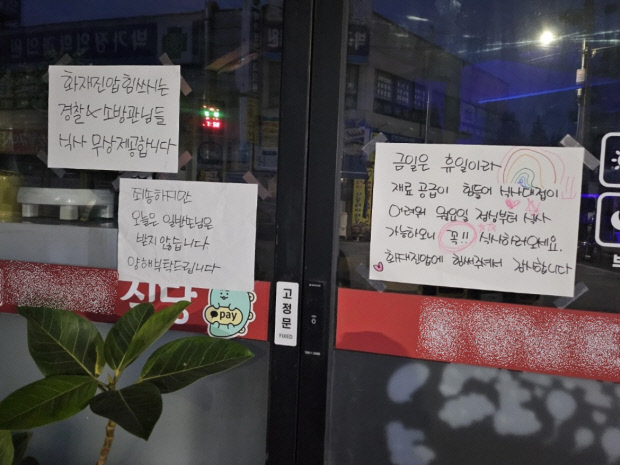 화재진압 힘쓰시는
경찰 & 소방관님들
식사 무상제공합니다
죄송하지만
오늘은 일반손님은
받지 않습니다
양해부탁드립니다
금일은 휴일이라
재료 공급이 힘들어 식사대접이
어려워 월요일 점심부터 식사
가능하오니 꼭!! 식사하러오세요.
화재진압에 힘써주셔서 감사합니다
식당
pay
고정문
FIXED